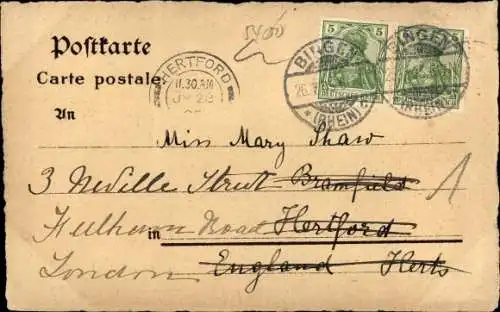 5400
Postkarte
Carte postale
An
HERTFORD
11.30 AM
5 5
BINGEN
26.
(RHEIN)
BINGEN
(RHEIN)
Miss Mary Shaw
3 Neville Street Bramfield
Road Hertford
in
London England Herts
1